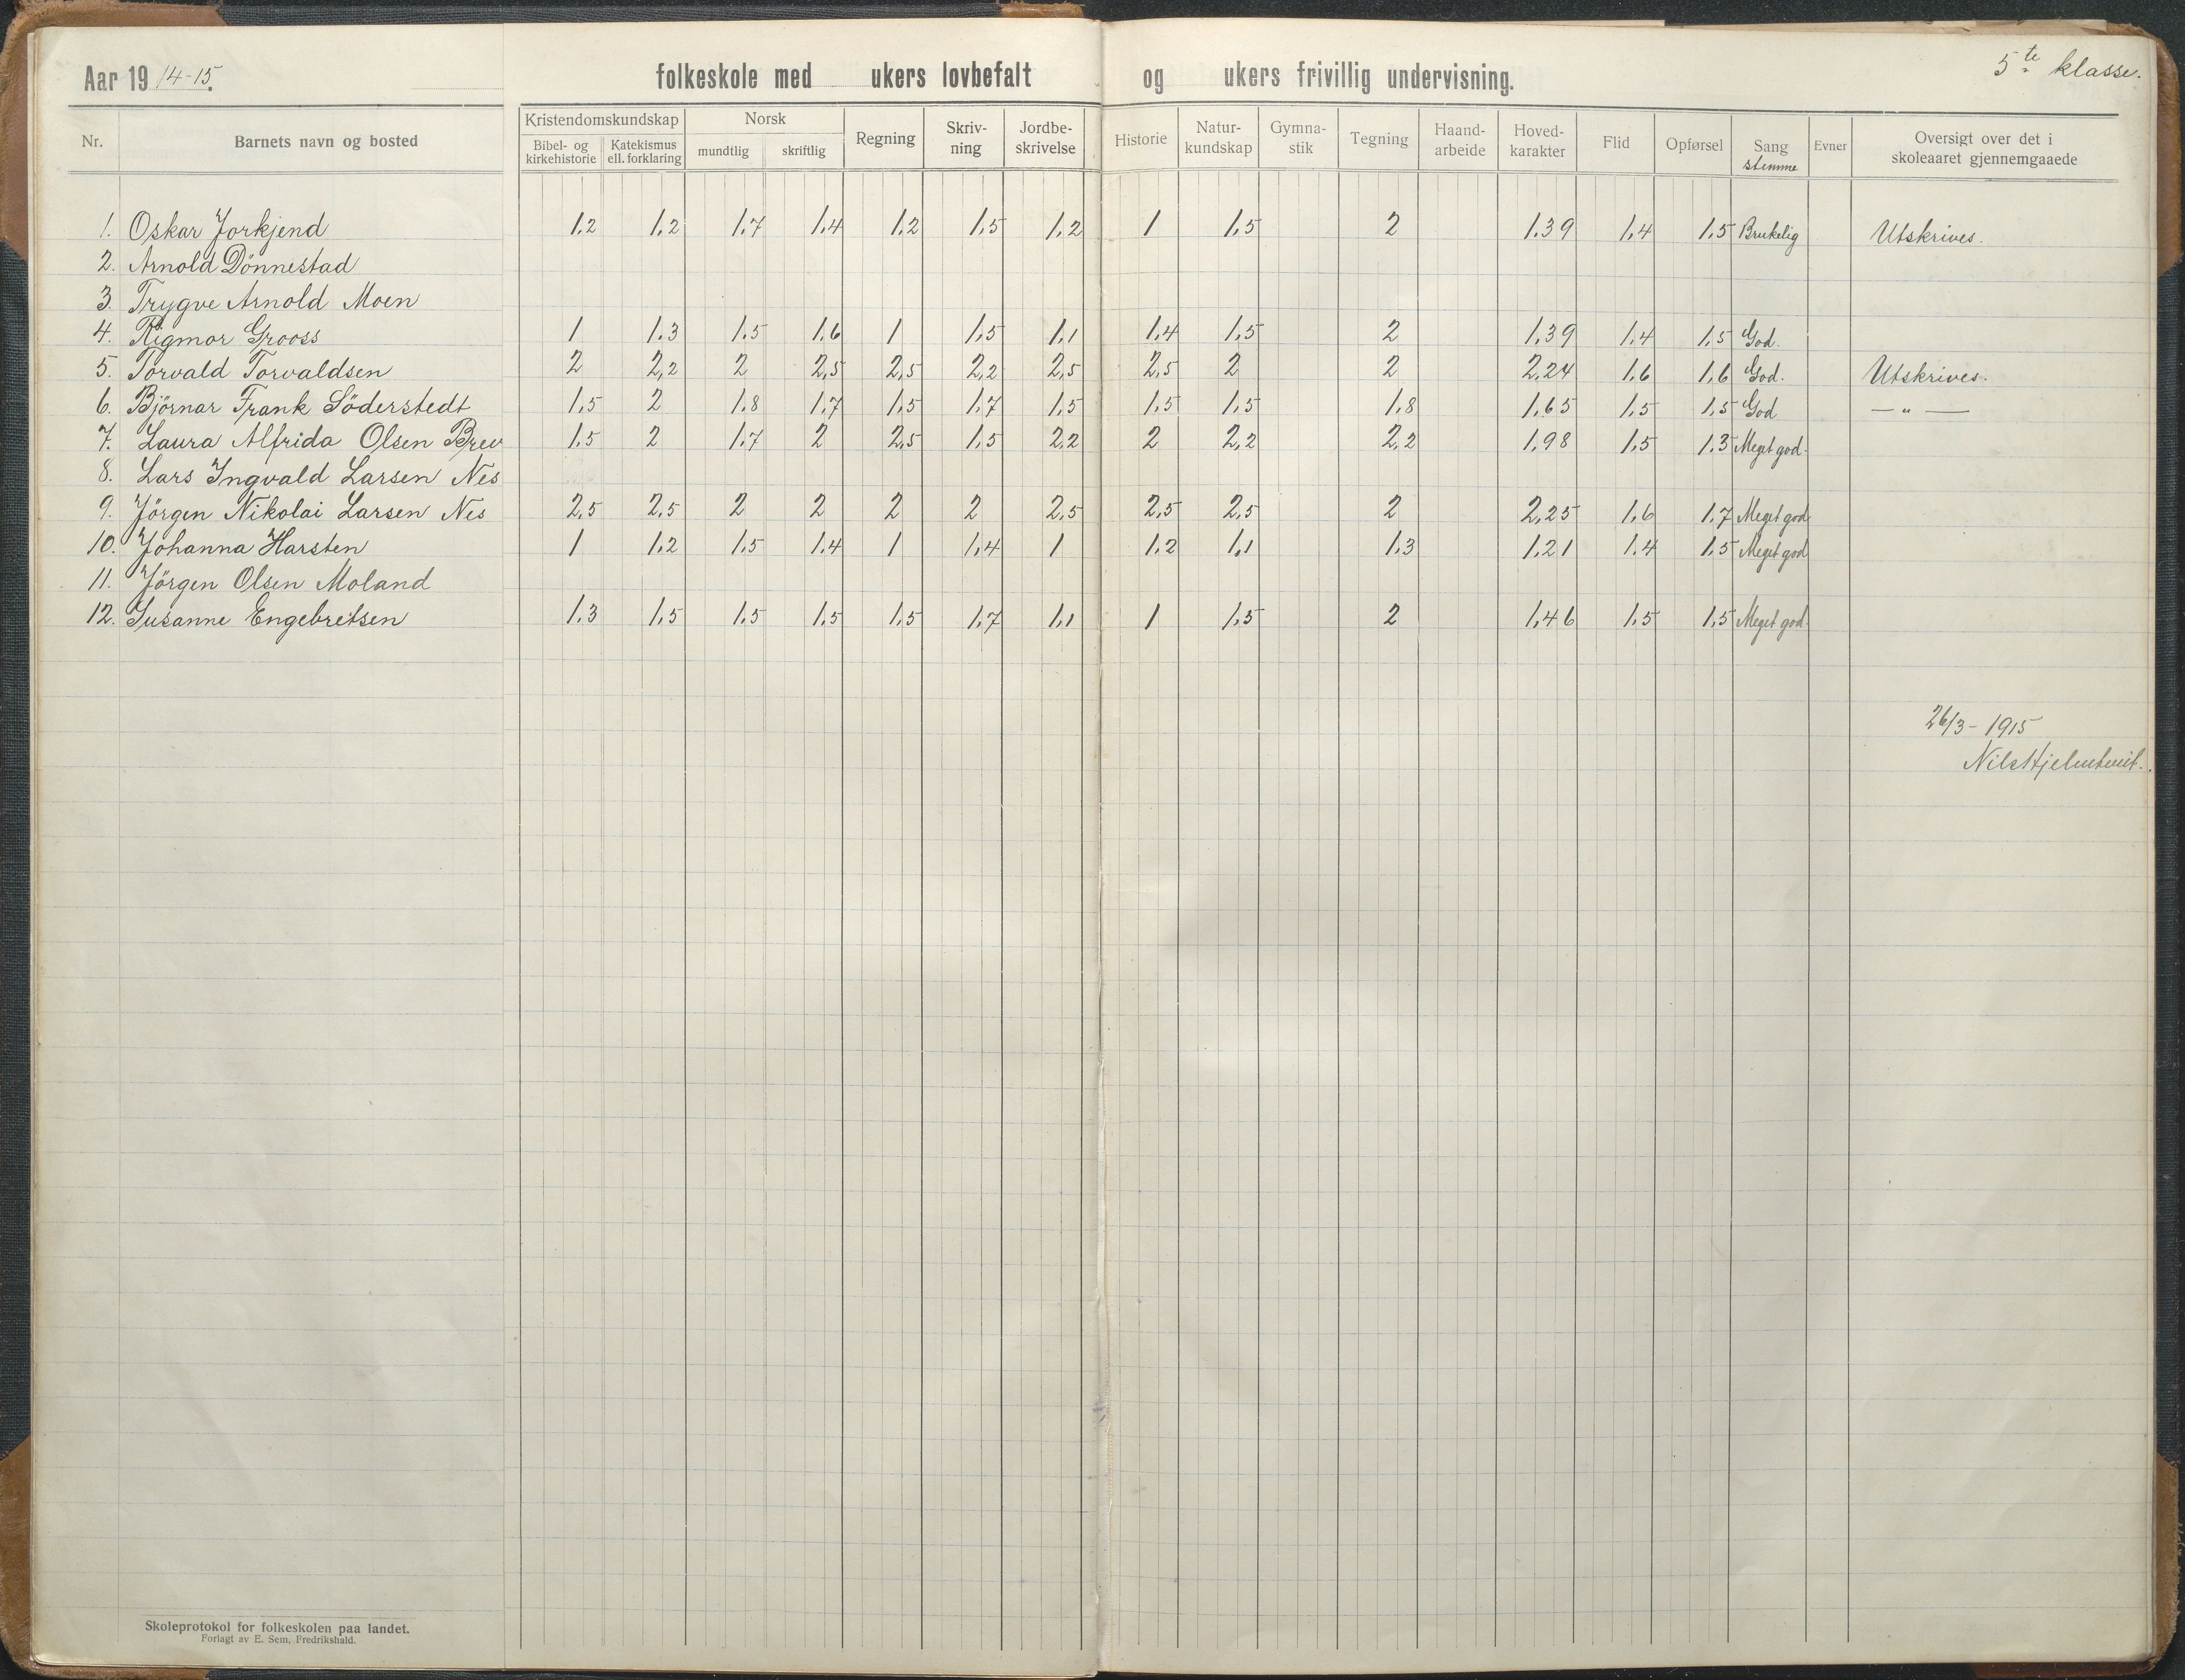 Aar 1914-15. folkeskole med ukers lovbefalt og ukers frivillig undervisning. 5te klasse.
Nr. Barnets navn og bosted Kristendomskundskap Bibel- og kirkehistorie Katekismus ell. forklaring Norsk mundtlig skriftlig Regning Skriv-ning Jordbe-skrivelse Historie Natur-kundskap Gymna-stik Tegning Haand-arbeide Hoved-karakter Flid Opførsel Sang stemme Evner Oversigt over det i skoleaaret gjennemgaaede
1. Oskar Jorkjend 1,2 1,2 1,7 1,4 1,2 1,5 1,2 1 1,5 2 1,39 1,4 1,5 Brukelig Utskrives.
2. Arnold Dönnestad
3. Trygve Arnold Moen
4. Rigmor Grooss 1 1,3 1,5 1,6 1 1,5 1,1 1,4 1,5 2 1,39 1,4 1,5 God.
5. Torvald Torvaldsen 2 2,2 2 2,5 2,5 2,2 2,5 2,5 2 2 2,24 1,6 1,6 God. Utskrives.
6. Björnar Frank Söderstedt 1,5 2 1,8 1,7 1,5 1,7 1,5 1,5 1,5 1,8 1,65 1,5 1,5 God — " —
7. Laura Alfrida Olsen Brev 1,5 2 1,7 2 2,5 1,5 2,2 2 2,2 2,2 1,98 1,5 1,3 Meget god.
8. Lars Ingvald Larsen Nes
9. Jörgen Nikolai Larsen Nes 2,5 2,5 2 2 2 2 2,5 2,5 2,5 2 2,25 1,6 1,7 Meget god
10. Johanna Harsten 1 1,2 1,5 1,4 1 1,4 1 1,2 1,1 1,3 1,21 1,4 1,5 Meget god
11. Jörgen Olsen Moland
12. Susanne Engebretsen 1,3 1,5 1,5 1,5 1,5 1,7 1,1 1 1,5 2 1,46 1,5 1,5 Meget god.
26/3-1915
Nils Hjelmtveit.
Skoleprotokol for folkeskolen paa landet.
Forlagt av E. Sem, Fredrikshald.